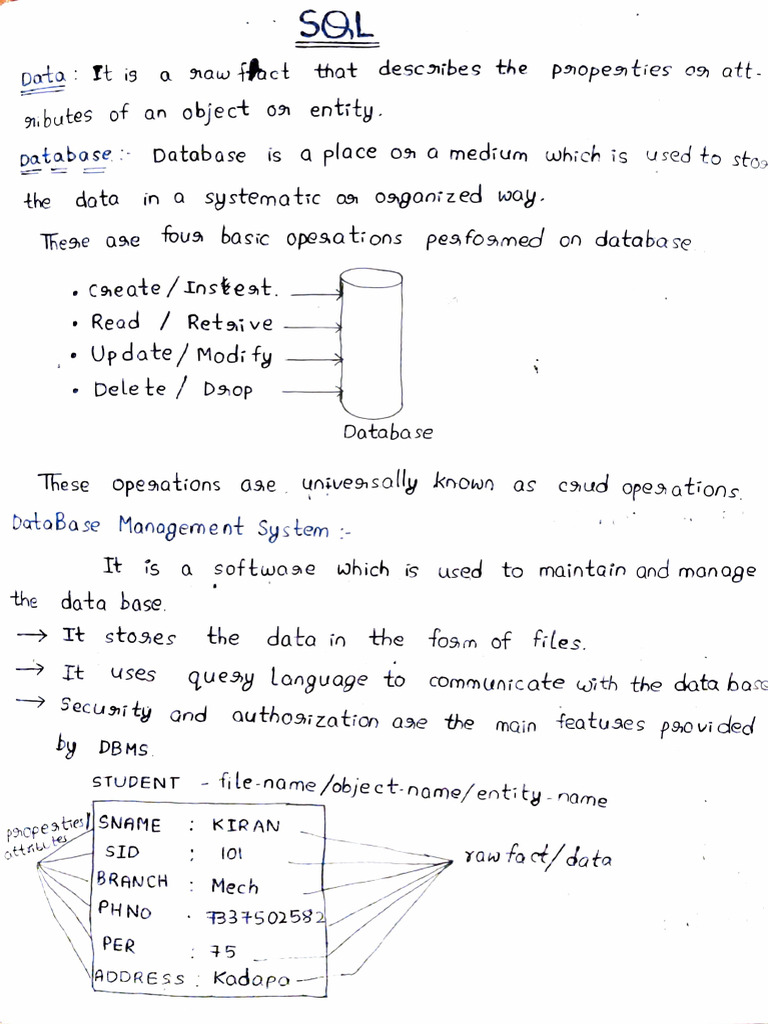 SQL
Data : It is a raw fact that describes the properties or att-
ributes of an object or entity.
Database :- Database is a place or a medium which is used to stor
the data in a systematic or organized way.
There are four basic operations performed on database
• Create / Instert.
• Read / Retrive
• Update / Modify
• Delete / Drop
Database
These operations are universally known as crud operations.
DataBase Management System :-
It is a software which is used to maintain and manage
the data base.
→ It stores the data in the form of files.
→ It uses query language to communicate with the data base
→ Security and authorization are the main features provided
by DBMS.
STUDENT - file-name/object-name/entity-name
properties/
attributes
SNAME : KIRAN
SID : 101
BRANCH : Mech
PHNO . 7337502582
PER : 75
ADDRESS : Kadapa
raw fact/data